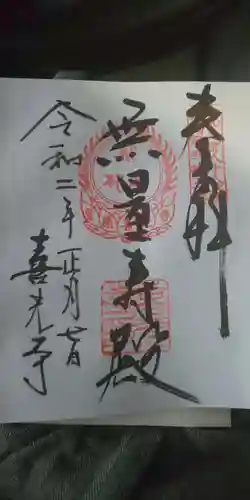 奉拝
無量寿殿
令和二年正月廿日
喜光寺